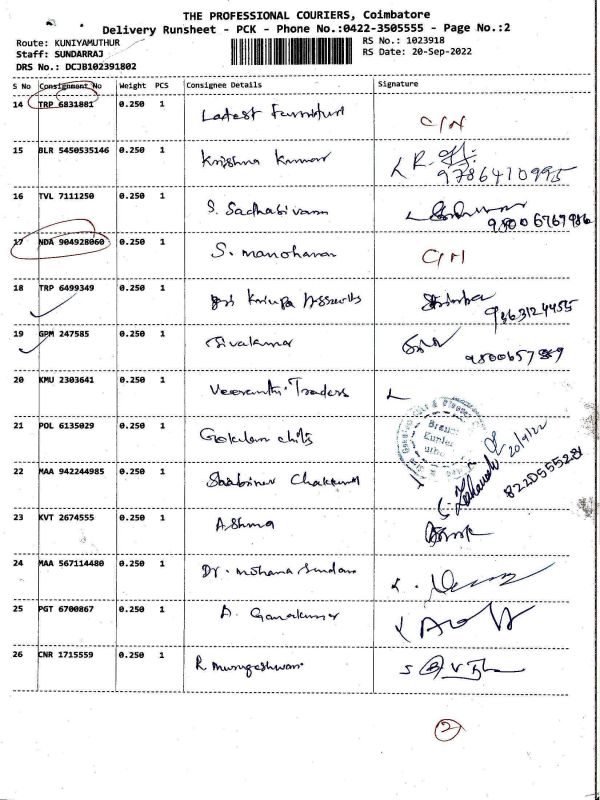 THE PROFESSIONAL COURIERS, Coimbatore
Delivery Runsheet - PCK - Phone No.:0422-3505555 - Page No.:2
Route: KUNIYAMUTHUR
RS No.: 1023918
Staff: SUNDARRAJ
RS Date: 20-Sep-2022
DRS No.: DCJB102391802
S No Consignment No Weight PCS Consignee Details Signature
14 TRP 6831881 0.250 1 Latest Furniture C/N
15 BLR 5450535146 0.250 1 Krishna Kumar
9786410995
16 TVL 7111250 0.250 1 S. Sadhasivam
9500676 7986
17 NDA 904928060 0.250 1 S. Manoharan C/N
18 TRP 6499349 0.250 1
9363124455
19 GPM 247585 0.250 1 Sivakumar
20 KMU 2303641 0.250 1 Traders
21 POL 6135029 0.250 1 Gokulam chits
20/9/22
22 MAA 942244985 0.250 1
8220555281
23 KVT 2674555 0.250 1 Ashma
24 MAA 567114480 0.250 1 Dr. Mohana Sundaram
25 PGT 6700867 0.250 1 A. Ganakumar
26 CNR 1715559 0.250 1 R Murugeshwari
2